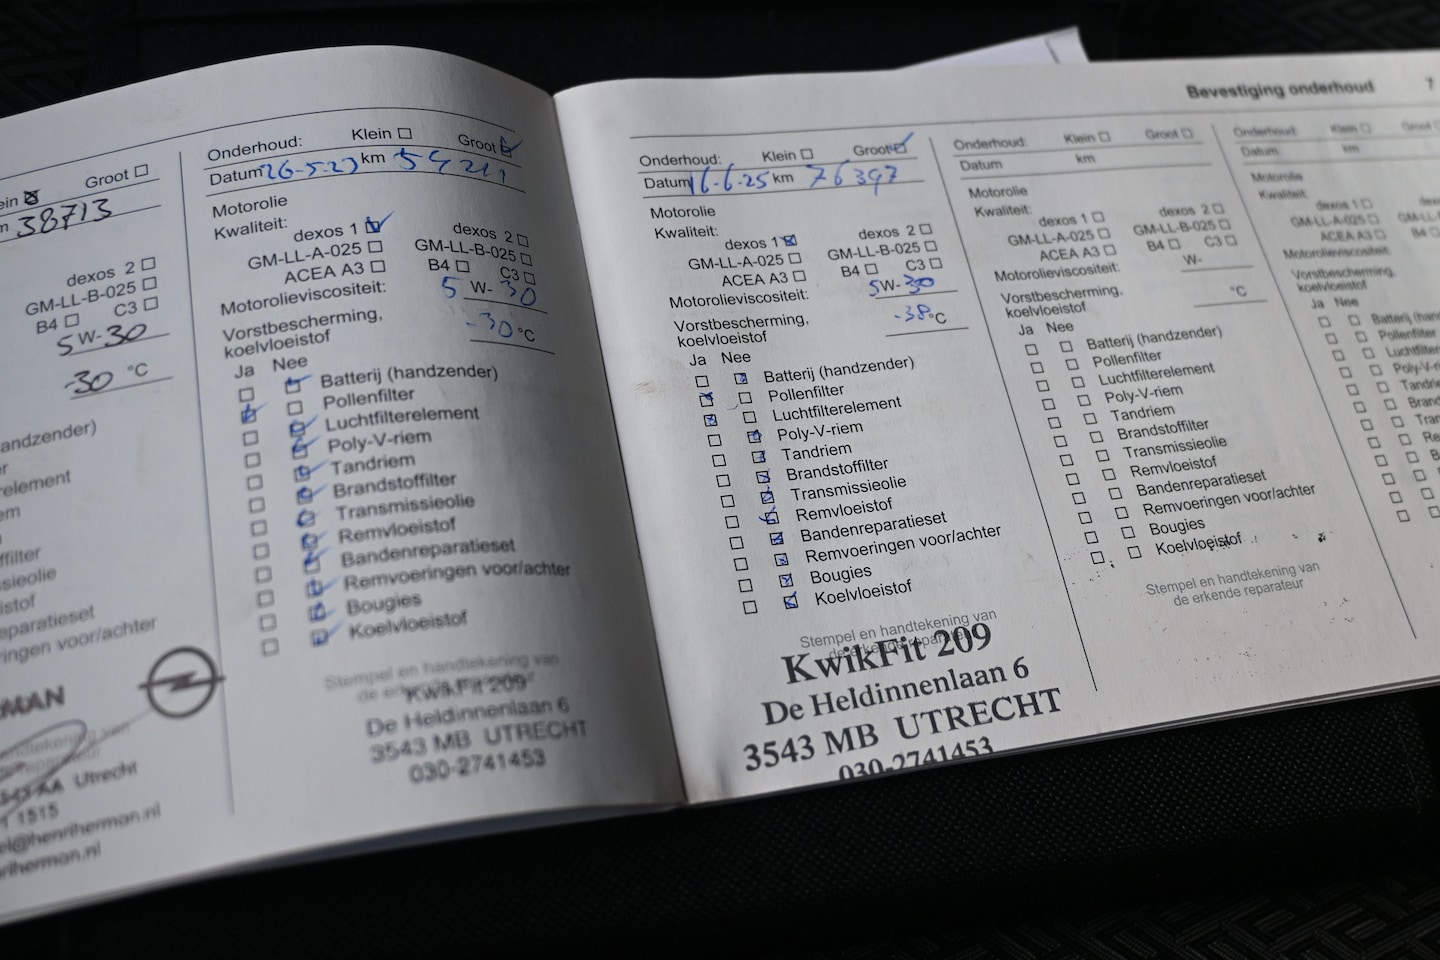 Bevestiging onderhoud 7
Groot
38713
dexos 2
GM-LL-B-025
B4 C3
5 W- 30
-30 °C
Utrecht
1515
Onderhoud: Klein Groot
Datum 26-5-23 km 54211
Motorolie
Kwaliteit:
dexos 1 dexos 2
GM-LL-A-025 GM-LL-B-025
ACEA A3 B4 C3
Motorolieviscositeit: 5 W- 30
Vorstbescherming,
koelvloeistof -30 °C
Ja Nee
Batterij (handzender)
Pollenfilter
Luchtfilterelement
Poly-V-riem
Tandriem
Brandstoffilter
Transmissieolie
Remvloeistof
Bandenreparatieset
Remvoeringen voor/achter
Bougies
Koelvloeistof
Stempel en handtekening van
de erkende reparateur
KwikFit 209
De Heldinnenlaan 6
3543 MB UTRECHT
030-2741453
Onderhoud: Klein Groot
Datum 16-6-25 km 76397
Motorolie
Kwaliteit:
dexos 1 dexos 2
GM-LL-A-025 GM-LL-B-025
ACEA A3 B4 C3
Motorolieviscositeit: 5 W- 30
Vorstbescherming,
koelvloeistof -38 °C
Ja Nee
Batterij (handzender)
Pollenfilter
Luchtfilterelement
Poly-V-riem
Tandriem
Brandstoffilter
Transmissieolie
Remvloeistof
Bandenreparatieset
Remvoeringen voor/achter
Bougies
Koelvloeistof
Stempel en handtekening van
de erkende reparateur
KwikFit 209
De Heldinnenlaan 6
3543 MB UTRECHT
030-2741453
Onderhoud: Klein Groot
Datum km
Motorolie
Kwaliteit:
dexos 1 dexos 2
GM-LL-A-025 GM-LL-B-025
ACEA A3 B4 C3
Motorolieviscositeit: W-
Vorstbescherming,
koelvloeistof °C
Ja Nee
Batterij (handzender)
Pollenfilter
Luchtfilterelement
Poly-V-riem
Tandriem
Brandstoffilter
Transmissieolie
Remvloeistof
Bandenreparatieset
Remvoeringen voor/achter
Bougies
Koelvloeistof
Stempel en handtekening van
de erkende reparateur
Onderhoud: Klein
Datum km
Motorolie
Kwaliteit:
dexos 1
GM-LL-A-025
ACEA A3
Motorolieviscositeit:
Vorstbescherming,
koelvloeistof
Ja Nee
Pollenfilter